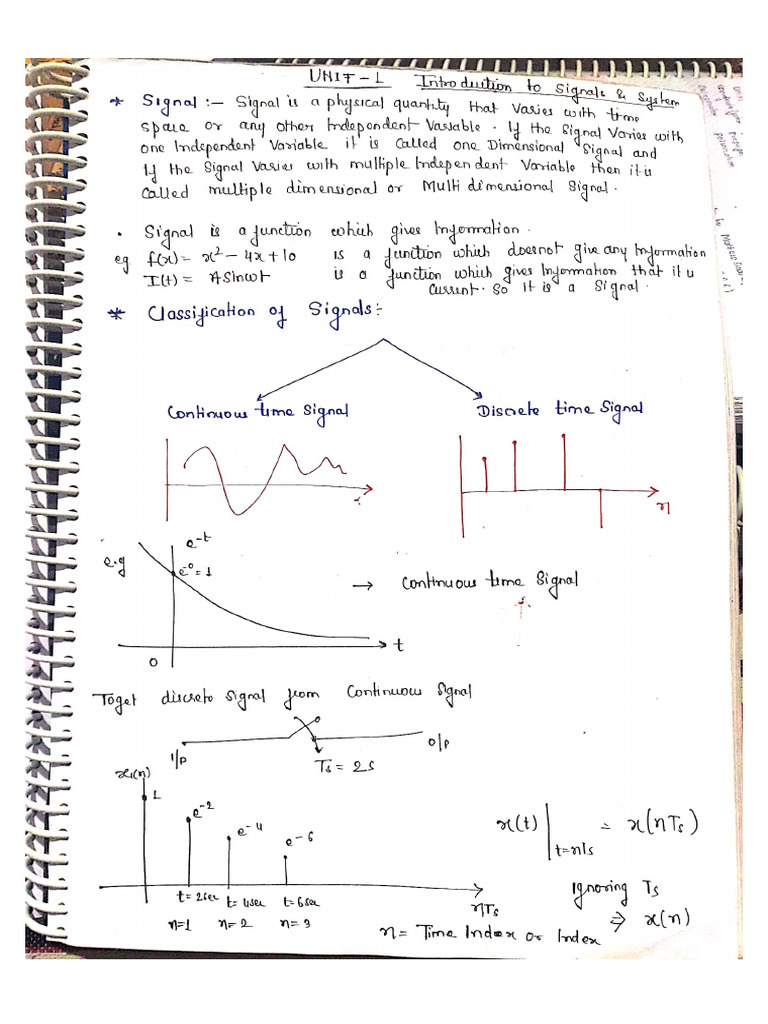 UNIT-1 Introduction to Signals & System
* Signal :- Signal is a physical quantity that varies with time
space or any other Independent Variable. If the Signal Varies with
one Independent Variable it is Called one Dimensional Signal and
If the Signal Varies with multiple Independent Variable then it is
Called multiple dimensional or Multi dimensional Signal.
• Signal is a function which gives Information.
eg f(x) = x² - 4x + 10 is a function which doesnot give any Information
I(t) = A Sinωt is a function which gives Information that it is
Current. So it is a Signal.
* Classification of Signals:-
Continuous time Signal Discrete time Signal
n
e.g e^-t
e^-0 = 1
→ Continuous time Signal
t
0
Toget discrete Signal from Continuous Signal
I/P O/P
Ts = 2s
x(n)
1 e^-2 e^-4 e^-6
x(t)|t=nTs = x(nTs)
t=2sec t=4sec t=6sec
nTs
n=1 n=2 n=3
Ignoring Ts
⇒ x(n)
n = Time Index or Index